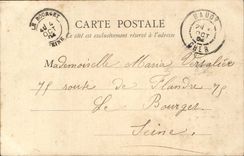 CARTE POSTALE
Ce côté est exclusivement réservé à l'adresse
LE BOURGET
SEINE
BAUGY
CHER
Mademoiselle Maria Versalier
75 route de Flandre 75
Le Bourget
Seine